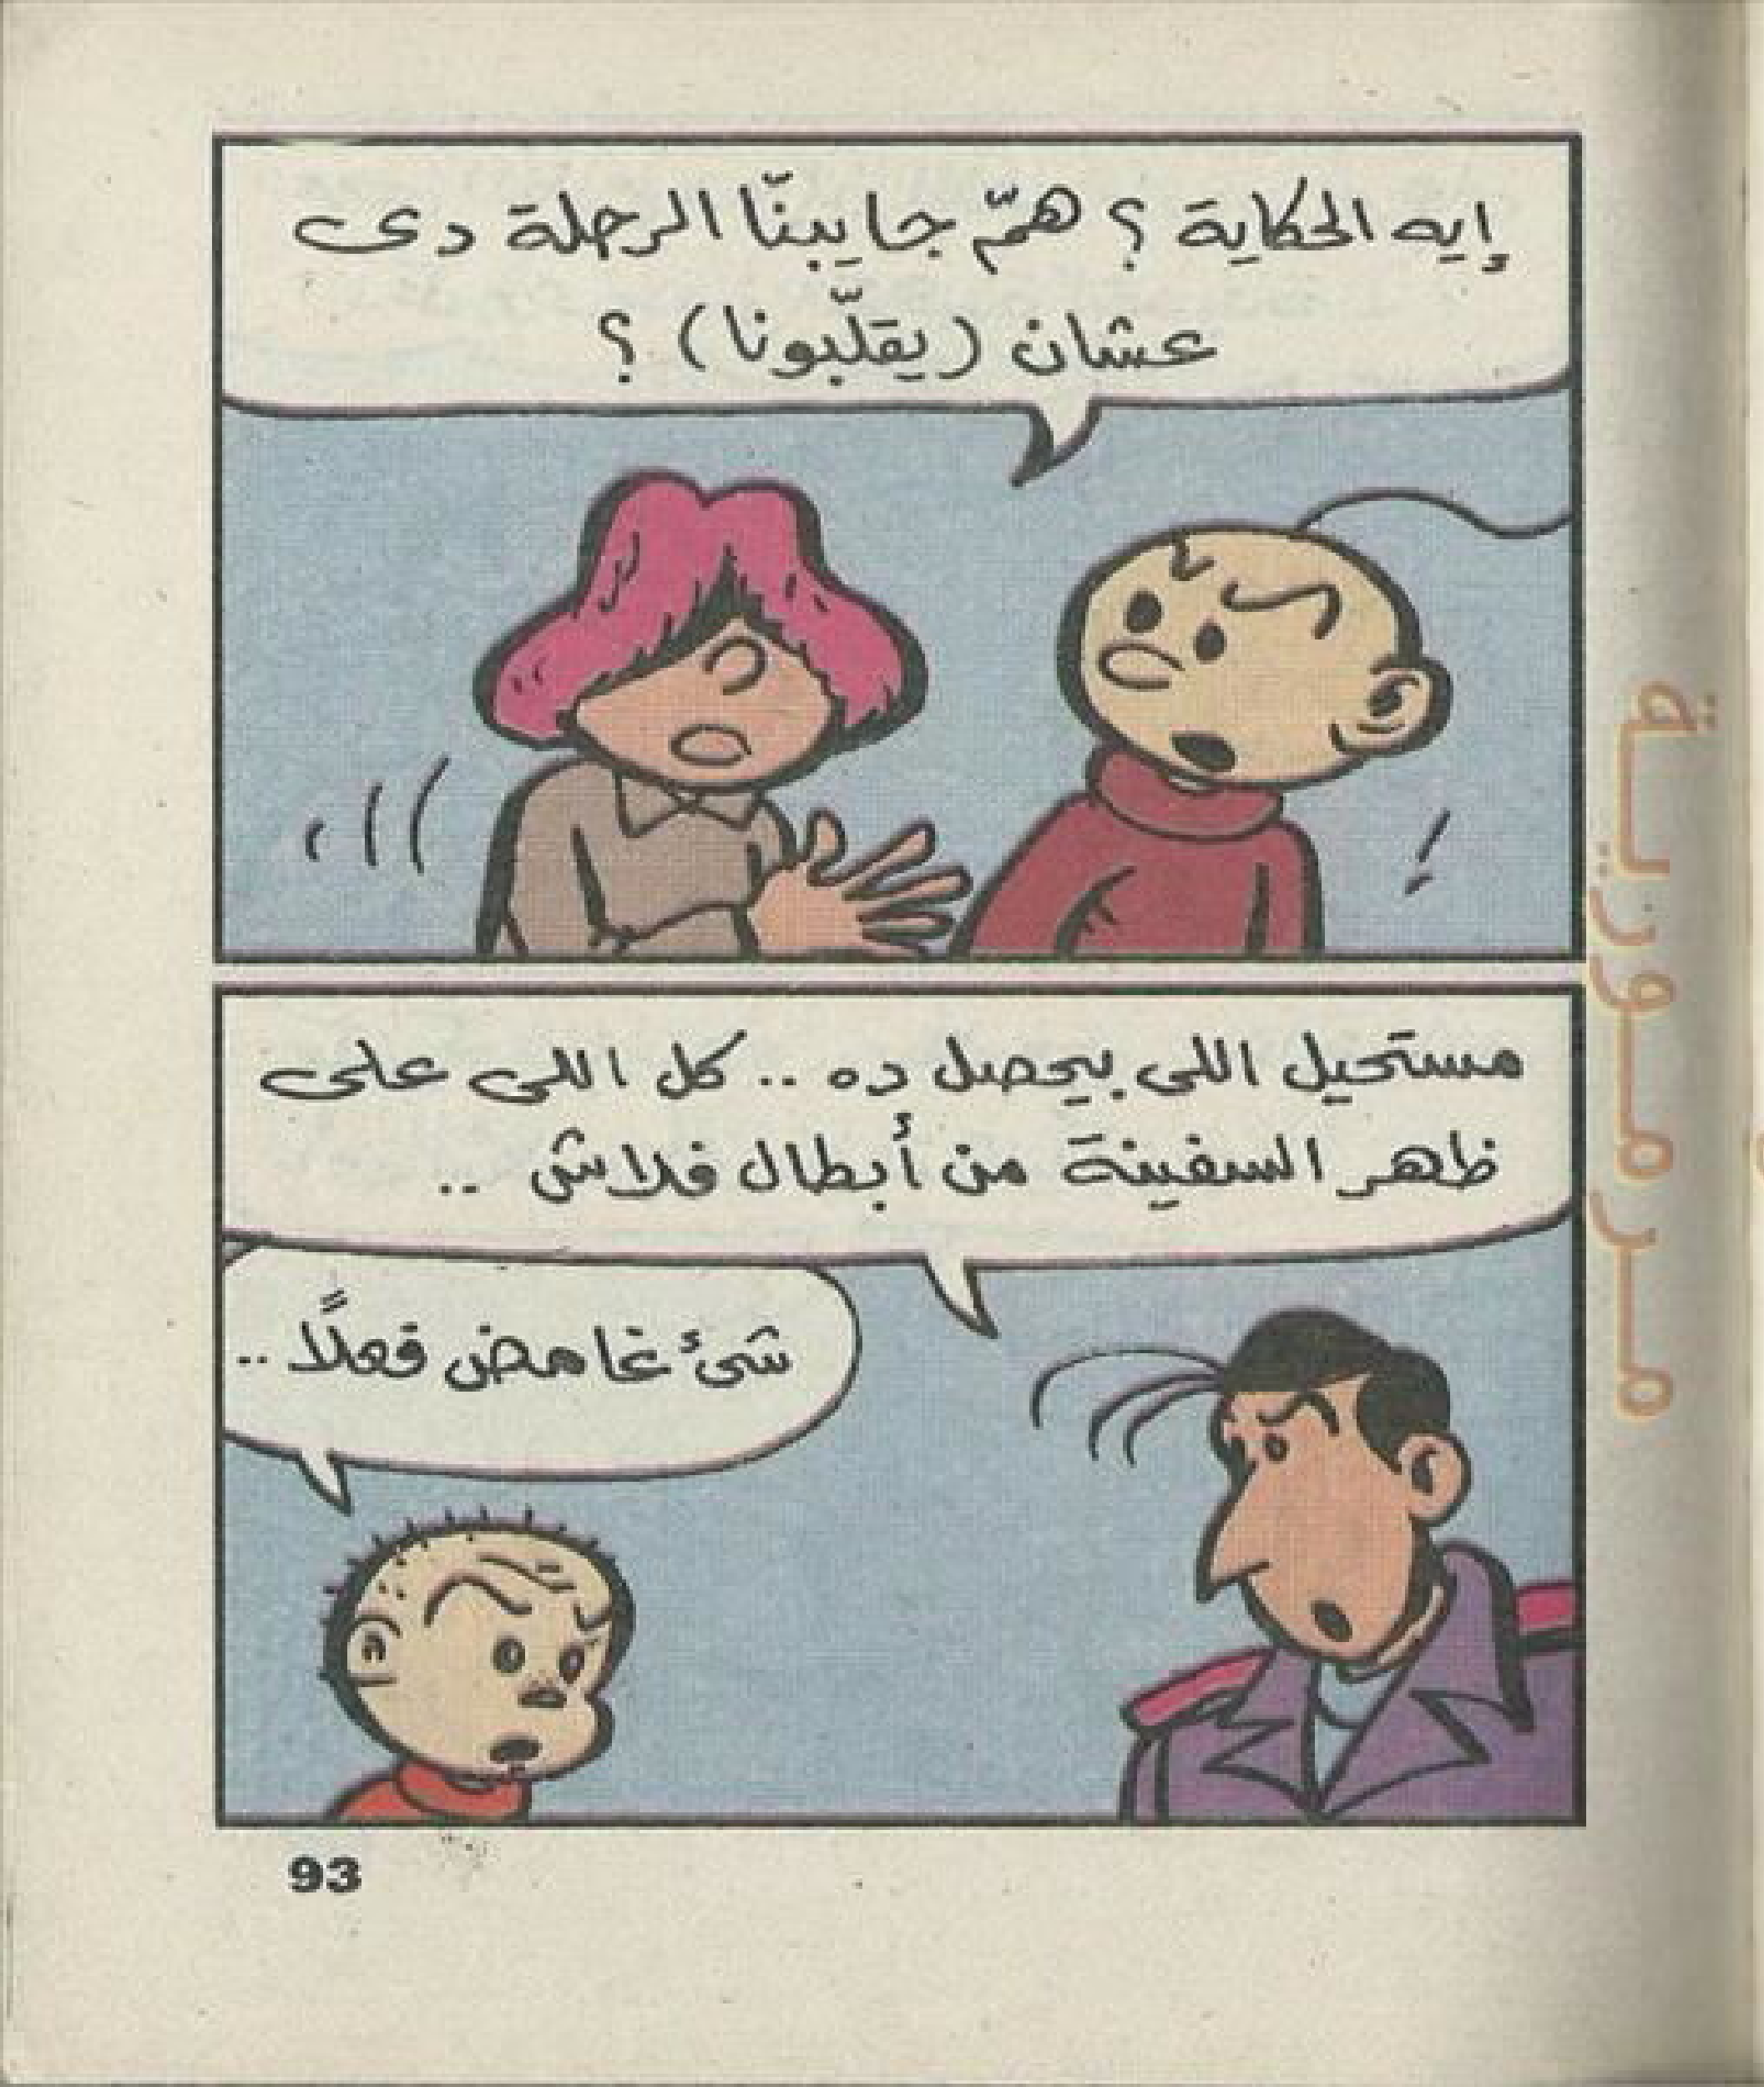 إيه الحكاية ؟ همّ جايبينّا الرحلة دى
عشان (يقلّبونا) ؟
مستحيل اللى بيحصل ده .. كل اللى على
ظهر السفينة من أبطال فلاش ..
شئ غامض فعلًا ..
93
مرمورية